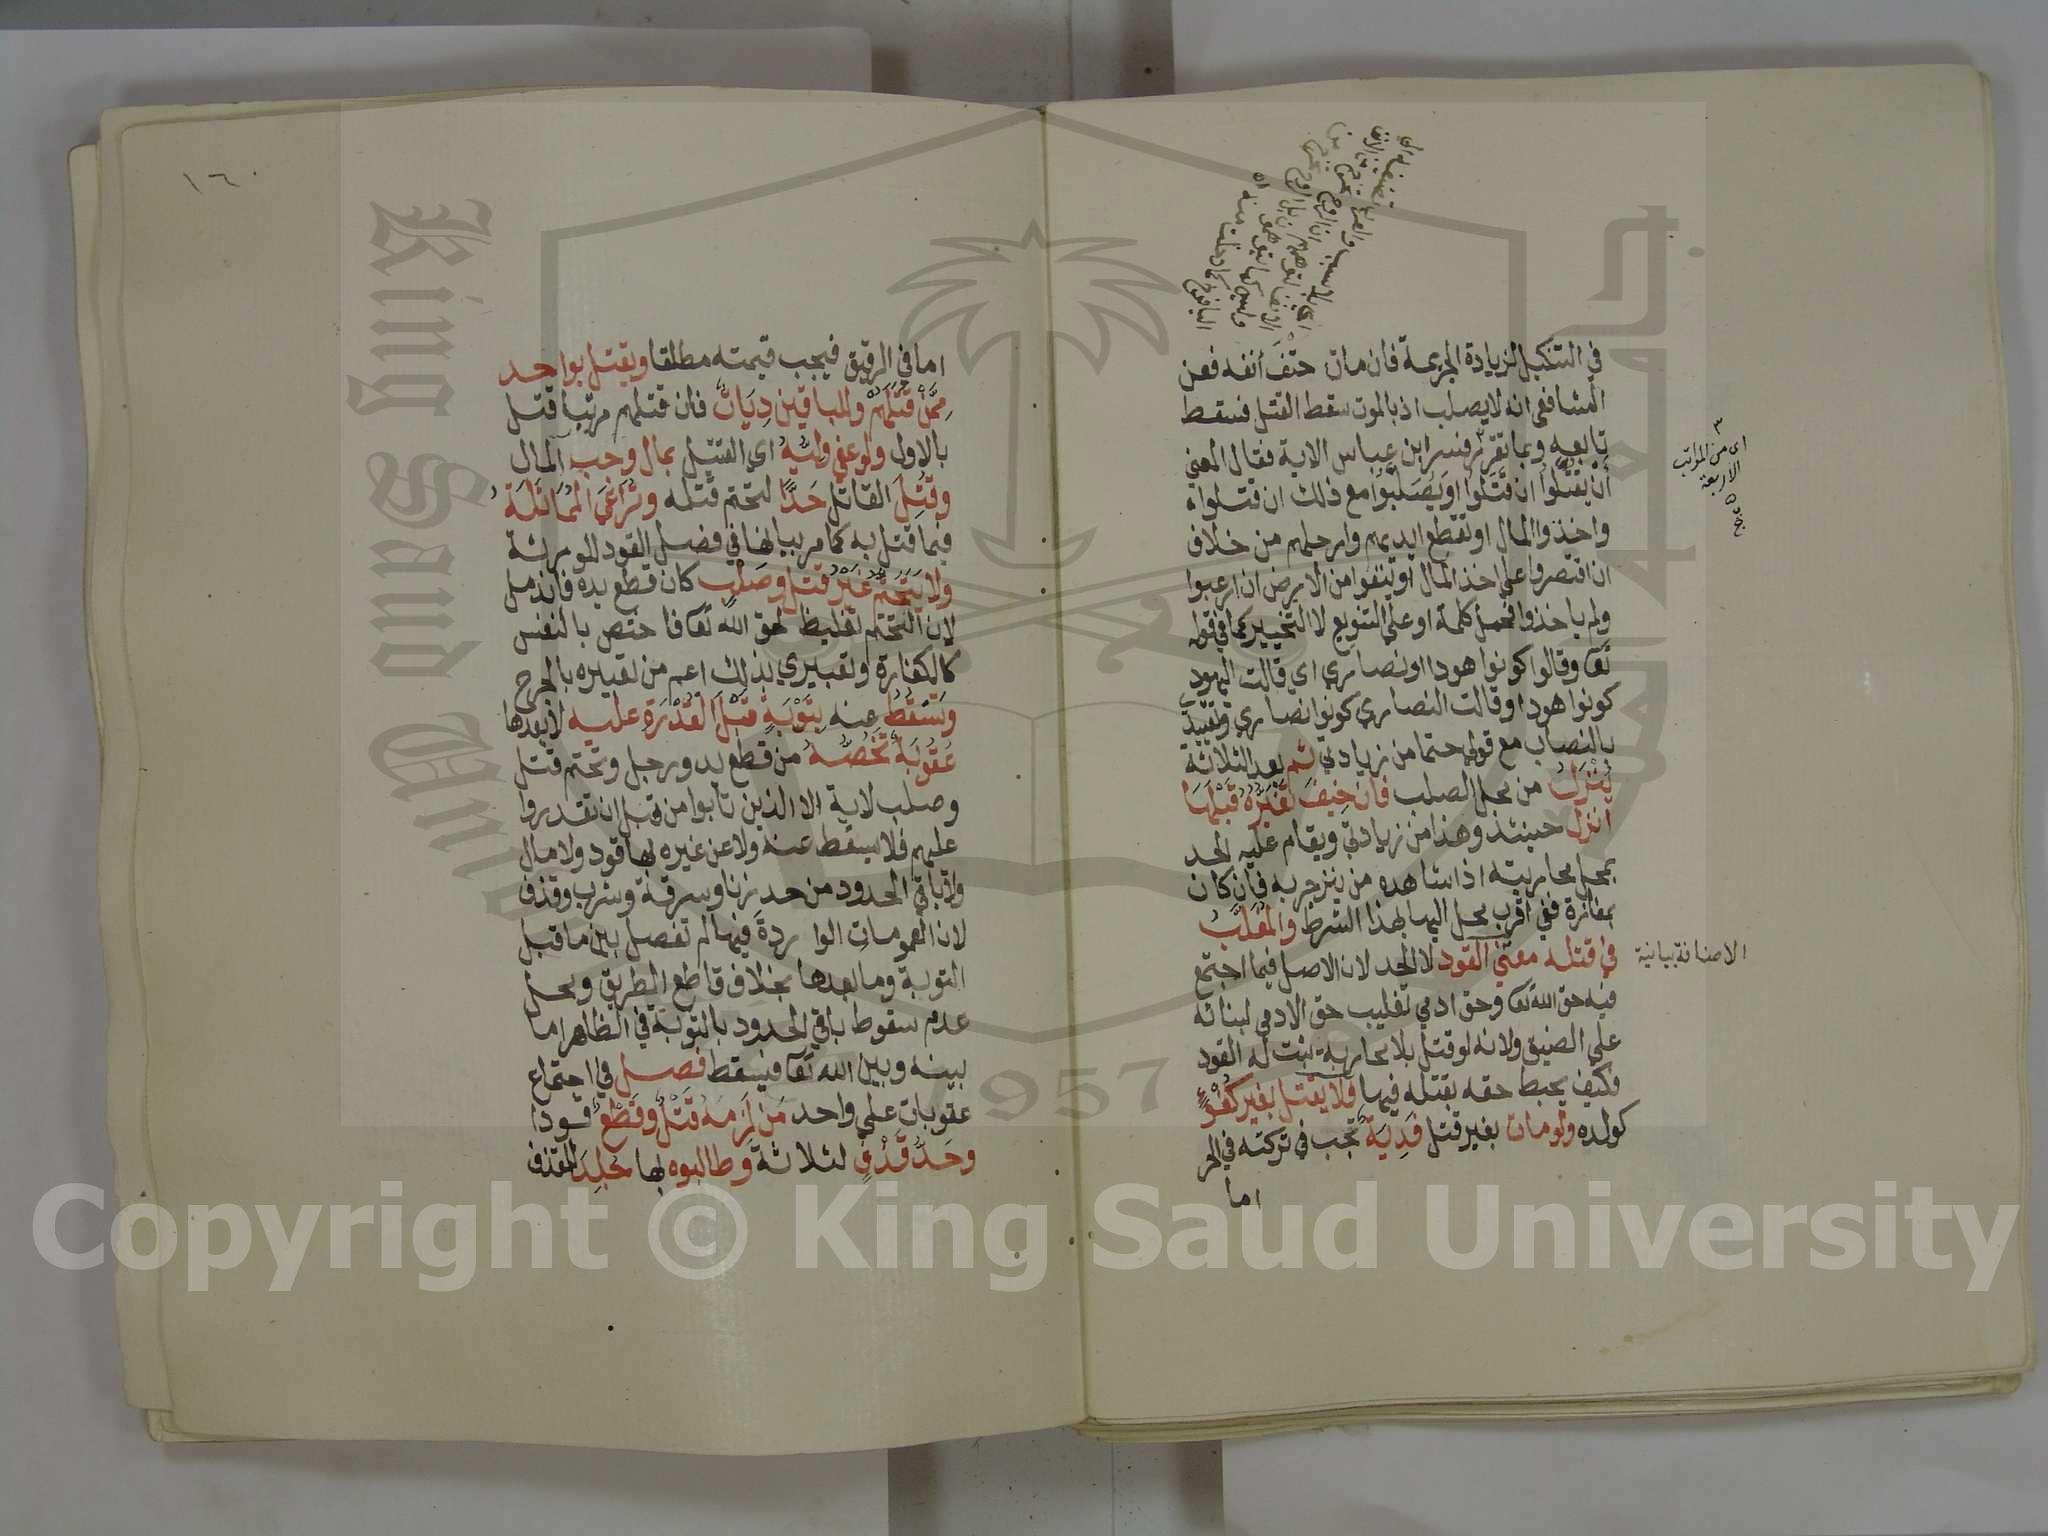 في التنكيل لزيادة الجريمة فان مات حتف أنفه فعن
الشافعي انه لا يصلب اذ بالموت سقط القتل فسقط
تابعه وبما تقرر فسر ابن عباس الاية فقال المعني
أن يقتلوا ان قتلوا او يصلبوا مع ذلك ان قتلوا
واخذوا المال او تقطع ايديهم وارجلهم من خلاف
ان اقتصروا على اخذ المال او ينفوا من الارض ان ارعبوا
ولم ياخذوا فحمل كلمة او على التنويع لا التخيير كما في قوله
تعا وقالوا كونوا هودا او نصاري اي قالت اليهود
كونوا هودا وقالت النصاري كونوا نصاري وتقييدي
بالنصاب مع قولي حتما من زيادتي ثم بعد الثلاثة
ينزل من محل الصلب فان خيف تغيره قبلها
انزل حينئذ وهذا من زيادتي ويقام عليه الحد
بمحل محاربته اذا شاهده من ينزجر به فان كان
بمفازة ففي اقرب محل اليها بهذا الشرط والمغلب
في قتله معني القود لا الحد لان الاصل فيما اجتمع
فيه حق الله تعا وحق ادمي تغليب حق الادمي لبنائه
على الضيق ولانه لو قتل بلا محاربة ثبت له القود
فكيف يحبط حقه بقتله فيها فلا يقتل بغير كفؤ
كولده ولو مات بغير قتل فدية تجب في تركته في الحر
اما
اى من المراتب
الاربعة
الاضافة بيانية
١٦٠
اما في الرقيق فيجب قيمته مطلقا ويقتل بواحد
ممن قتلهم وللباقين ديات فان قتلهم مرتبا قتل
بالاول ولو عفي وليه اي القتيل بمال وجب المال
وقتل القاتل حدا لتحتم قتله وتراعي المماثلة
فيما قتل به كما مر بيانها في فصل القود للورثة
ولا يتحتم غير قتل وصلب كان قطع يده فاندمل
لان التحتم تغليظ لحق الله تعا فاختص بالنفس
كالكفارة وتعبيري بذلك اعم من تعبيره بالجرح
وتسقط عنه بتوبة قبل القدرة عليه لا بعدها
عقوبة تخصه من قطع يد ورجل وتحتم قتل
وصلب لاية الا الذين تابوا من قبل ان تقدروا
عليهم فلا يسقط عنه ولا عن غيره بها قود ولا مال
ولا باقي الحدود من حد زنا وسرقة وشرب وقذف
لان العمومات الواردة فيها لم تفصل بين ما قبل
التوبة وما بعدها بخلاف قاطع الطريق ومحل
عدم سقوط باقي الحدود بالتوبة في الظاهر اما
بينه وبين الله تعا فيسقط فصل في اجتماع
عقوبات على واحد من لزمه قتل وقطع قودا
وحد قذف لثلاثة وطالبوه بها جلد للقذف
King Saud University
1957
Copyright © King Saud University